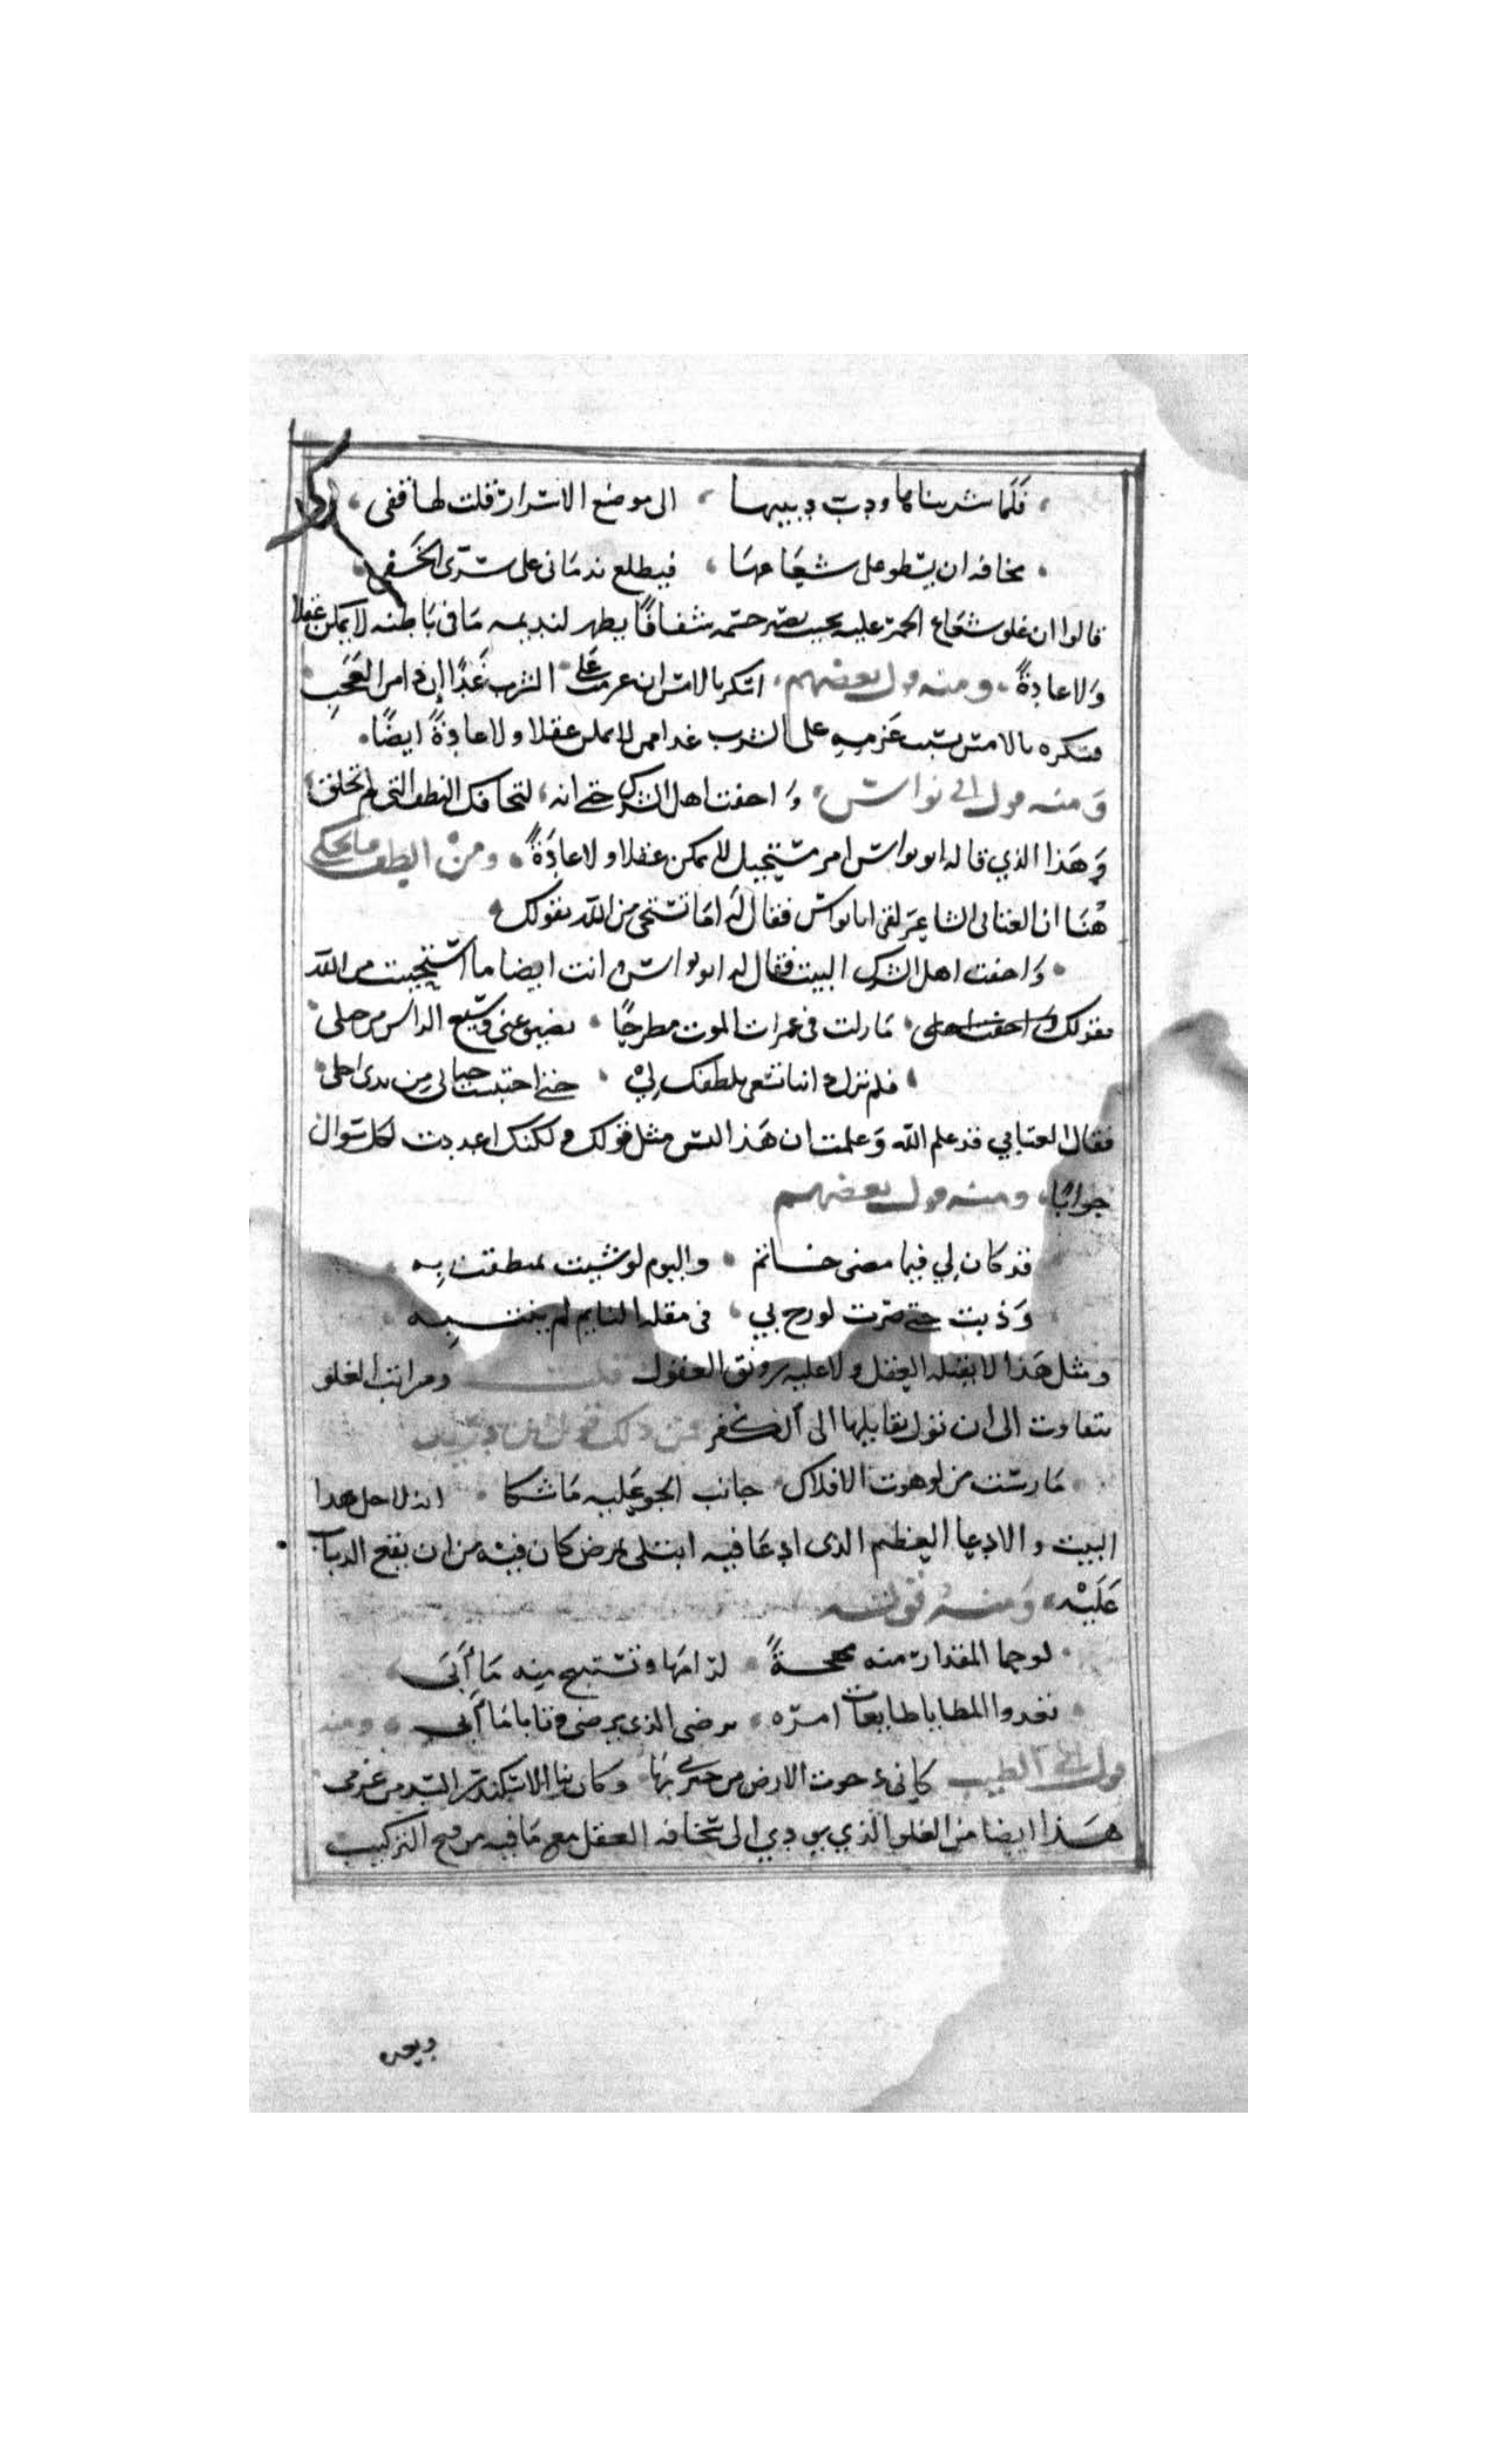 فلما شربناها ودب دبيبها ، الى موضع الاسرار قلت لها قفى ،
، مخافة ان يسطو على شعاعها ، فيطلع ندمانى على سرى الخفى
قالوا ان غلو شعاع الخمر عليه بحيث يصير جسمه شفافا يظهر لنديمه ما فى باطنه لا يمكن عقلا
ولا عادةً ، ومنه قول بعضهم ، اسكر بالامس ان عزمت على الشرب غدًا إن ذا من العَجَبِ
فسكره بالامس بسبب عزمه على الشرب غدا امر لا يمكن عقلا ولا عادةً ايضًا .
ومنه قول ابى نواس ، واخفت اهل الشرك حتى انه ، لتخافك النطف التى لم تخلق
وهذا الذي قاله ابو نواس امر مستحيل لا يمكن عقلا ولا عادةً ، ومن الطف ما يحكى
هُنا ان العتابى الشاعر لقى ابا نواس فقال له اما تستحى من الله بقولك
، واخفت اهل الشرك البيت فقال له ابو نواس وانت ايضا ما استحييت من الله
بقولك ، ما زلت فى غمرات الموت مطرحًا ، يضيق عنى وسيع الراى من حيلى
، فلم تزل دائبا تسعى بلطفك لي ، حتى اختلست حياتى من يدى اجلى
فقال العتابي قد علم الله وعلمت ان هذا ليس مثل قولك ولكنك اعددت لكل سوال
جوابًا ، ومنه قول بعضهم
قد كان لي فيما مضى خاتم ، واليوم لو شيت تمنطقت به
وذبت حتى صرت لو زج بي ، فى مقلة النايم لم ينتبه
ومثل هذا لا يقبله العقل ولا عليه رونق القبول قلت ومراتب الغلو
تتفاوت الى ان تؤل بقايلها الى الكفر فمن ذلك قول ابن دريد
، مارست من لو هوت الافلاك ، جانب الجو عليه ما شكا ،
البيت والادعا العظيم الذى ادعا فيه ابتلى بمرض كان فيه من ان يقع الذباب
عَلَيْه ، وَمنه قوله
، لو حما المقدار منه مهجةً ، لرامها وتستبيح منه ما أبى
، تغدوا المطايا طايعات امره ، يرضى الذي يرضى وتابا ما أبى ، ومنه
قول ابى الطيب كانى دحوت الارض من خبرتى بها ، وكان بنا الاسكندر السد من عزمى
هذا ايضا من الغلو الذي يودي الى سخافه العقل مع ما فيه من قبح التركيب
وبعده